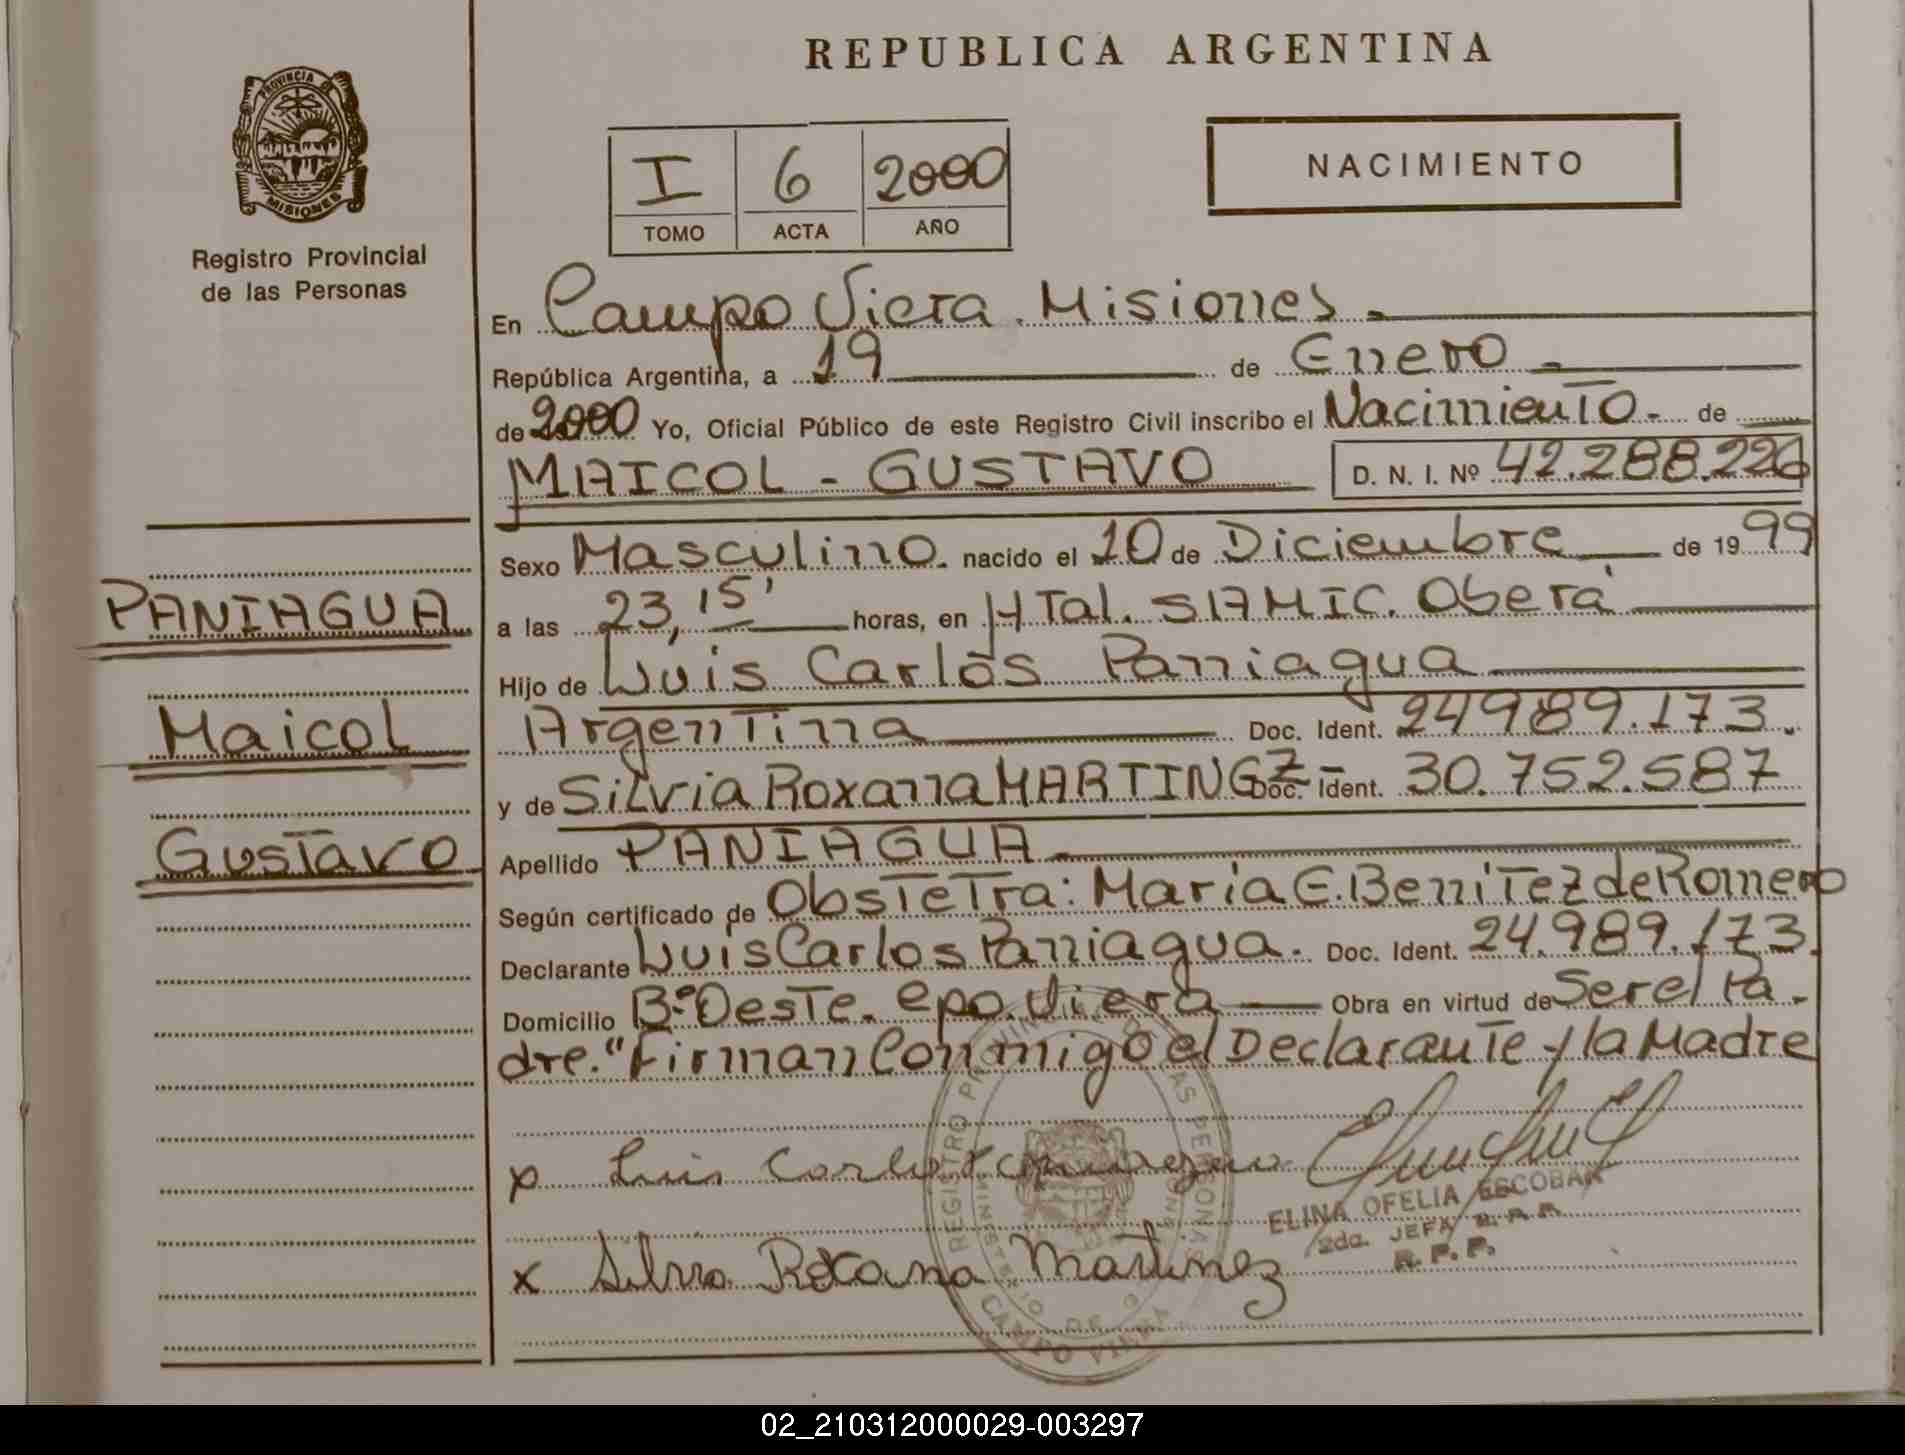 REPUBLICA ARGENTINA
PROVINCIA DE
MISIONES
Registro Provincial
de las Personas
I 6 2000
TOMO ACTA AÑO
NACIMIENTO
En Campo Viera. Misiones.-
República Argentina, a 19 de Enero -
de 2000 Yo, Oficial Público de este Registro Civil inscribo el Nacimiento.- de
MAICOL - GUSTAVO D. N. I. Nº 42.288.226
Sexo Masculino. nacido el 10 de Diciembre de 1999
a las 23,15' horas, en HTal. SAMIC. Oberá
Hijo de Luis Carlos Paniagua
Argentina Doc. Ident. 24989.173.
y de Silvia Roxana MARTINEZ- Doc. Ident. 30.752.587
Apellido PANIAGUA
Según certificado de Obstetra: María E. Benitez de Romero
Declarante Luis Carlos Paniagua. Doc. Ident. 24.989.173.
Domicilio Bº Oeste. Cpo. Viera Obra en virtud de Ser el Pa-
dre." Firman Conmigo el Declarante y la Madre
PANIAGUA
Maicol
Gustavo
x Luis Carlos Paniagua
ELINA OFELIA ESCOBAR
2da. JEFA
R. P. P.
x Silvia Roxana Martinez
REGISTRO PROVINCIAL DE LAS PERSONAS
CAMPO VIERA
02_210312000029-003297